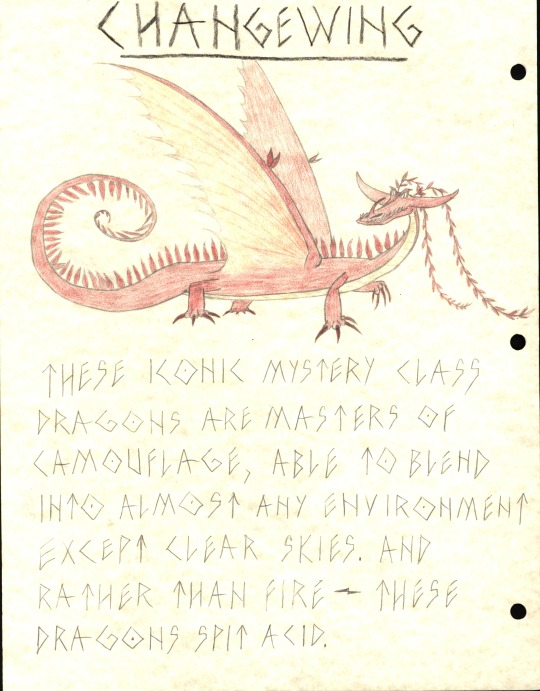 CHANGEWING
THESE ICONIC MYSTERY CLASS
DRAGONS ARE MASTERS OF
CAMOUFLAGE, ABLE TO BLEND
INTO ALMOST ANY ENVIRONMENT
EXCEPT CLEAR SKIES. AND
RATHER THAN FIRE - THESE
DRAGONS SPIT ACID.